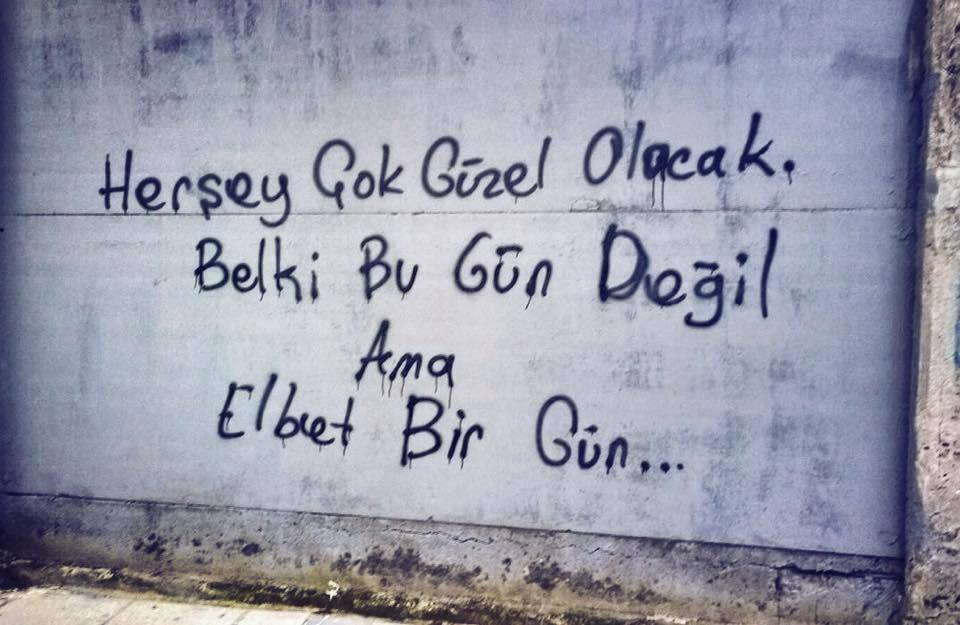 Herşey Çok Güzel Olacak.
Belki Bu Gün Değil
Ama
Elbet Bir Gün...